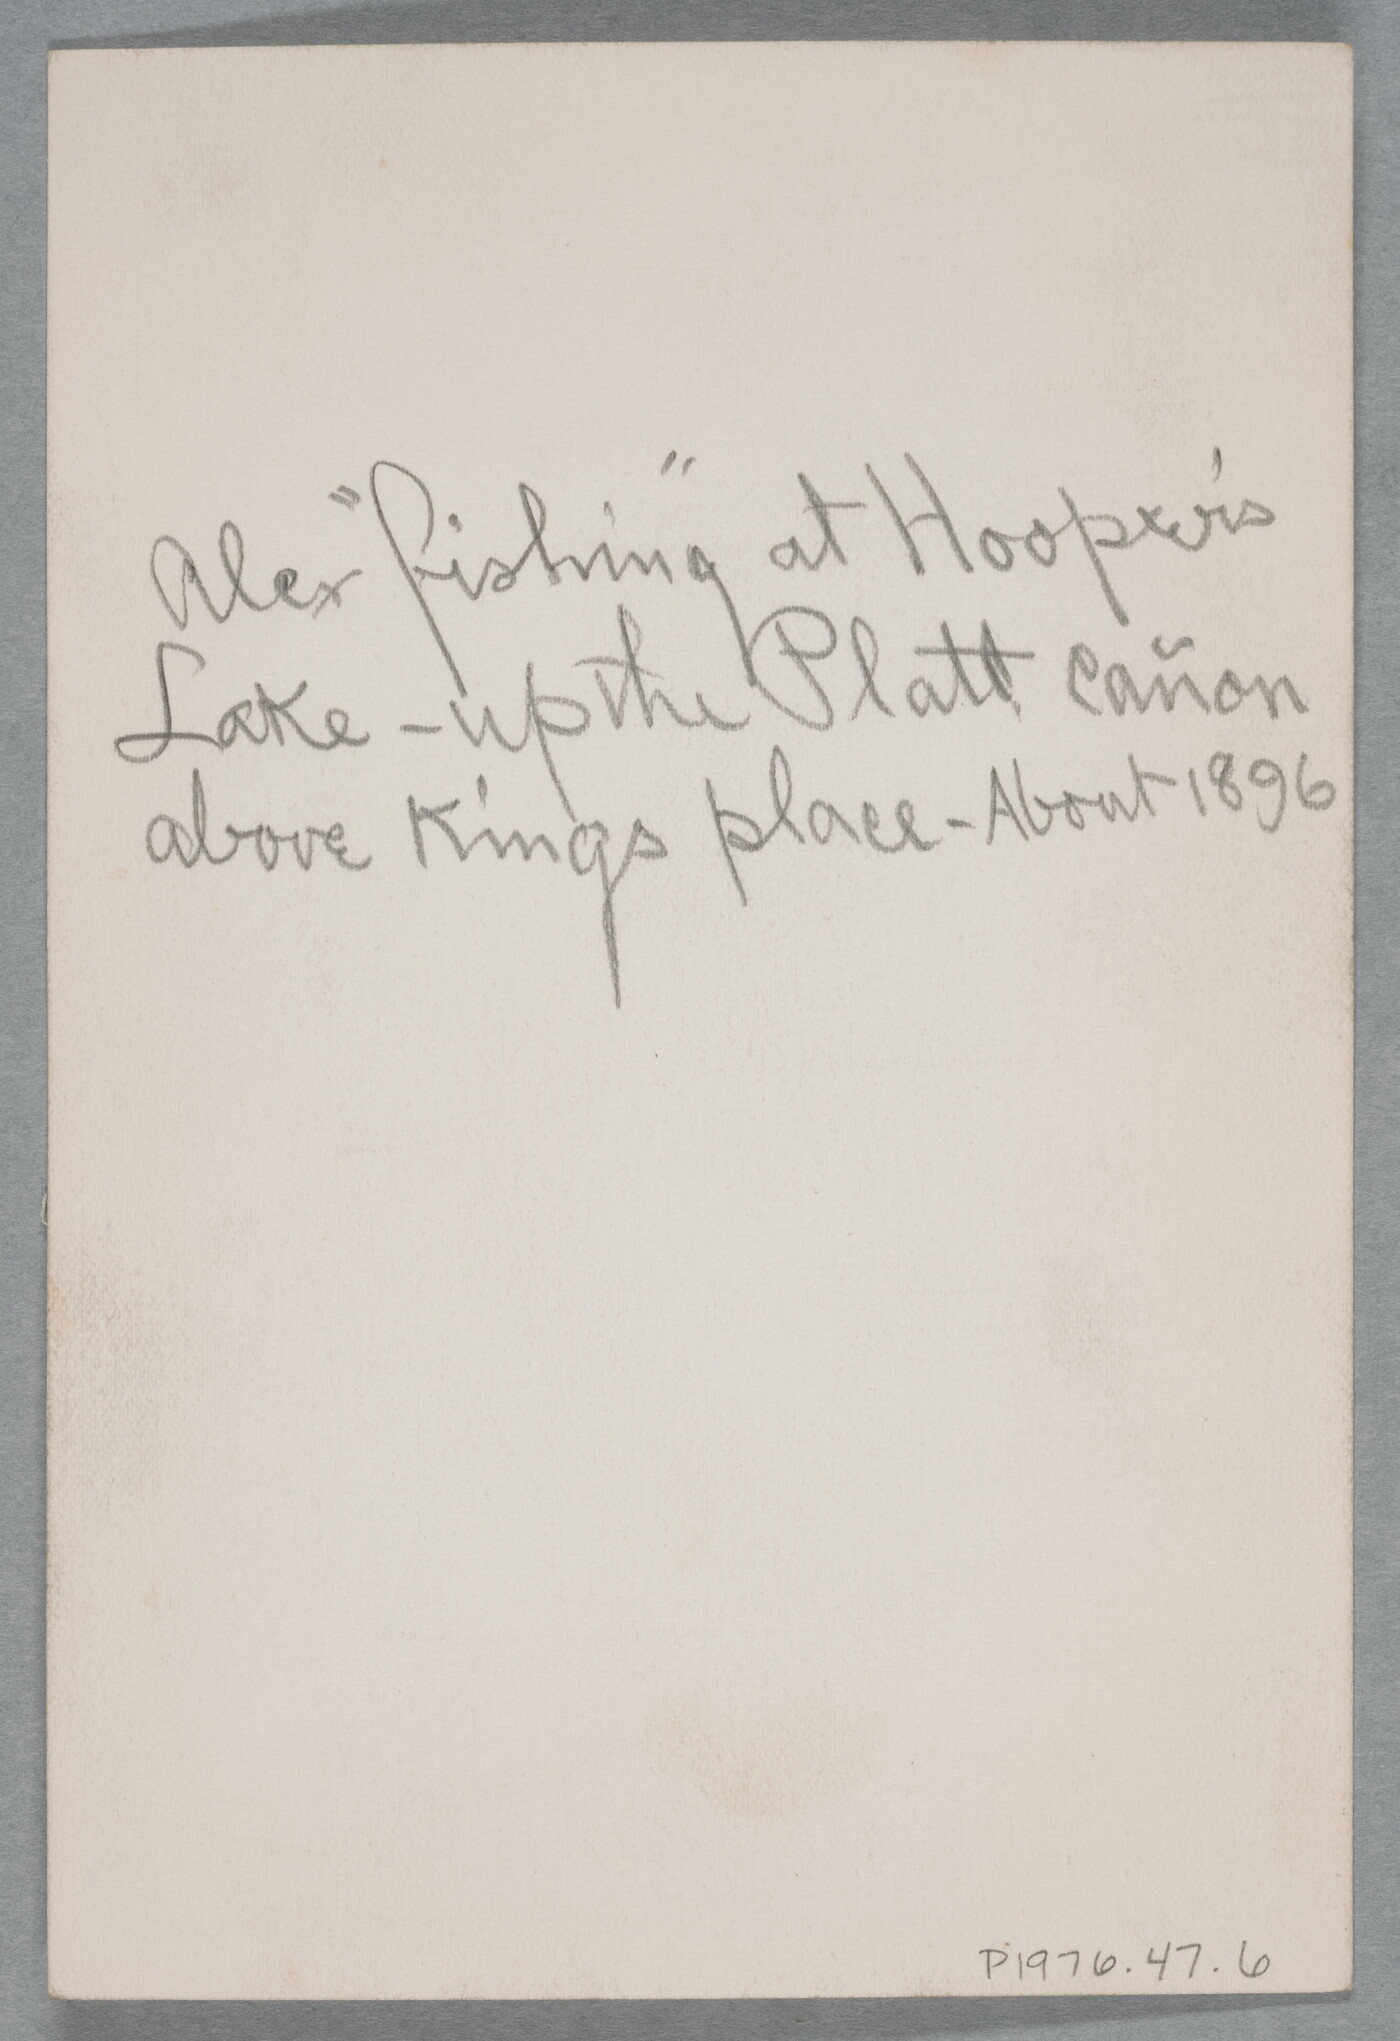 Alex "fishing" at Hooper's
Lake - up the Platt Cañon
above Kings place - About 1896
P1976.47.6